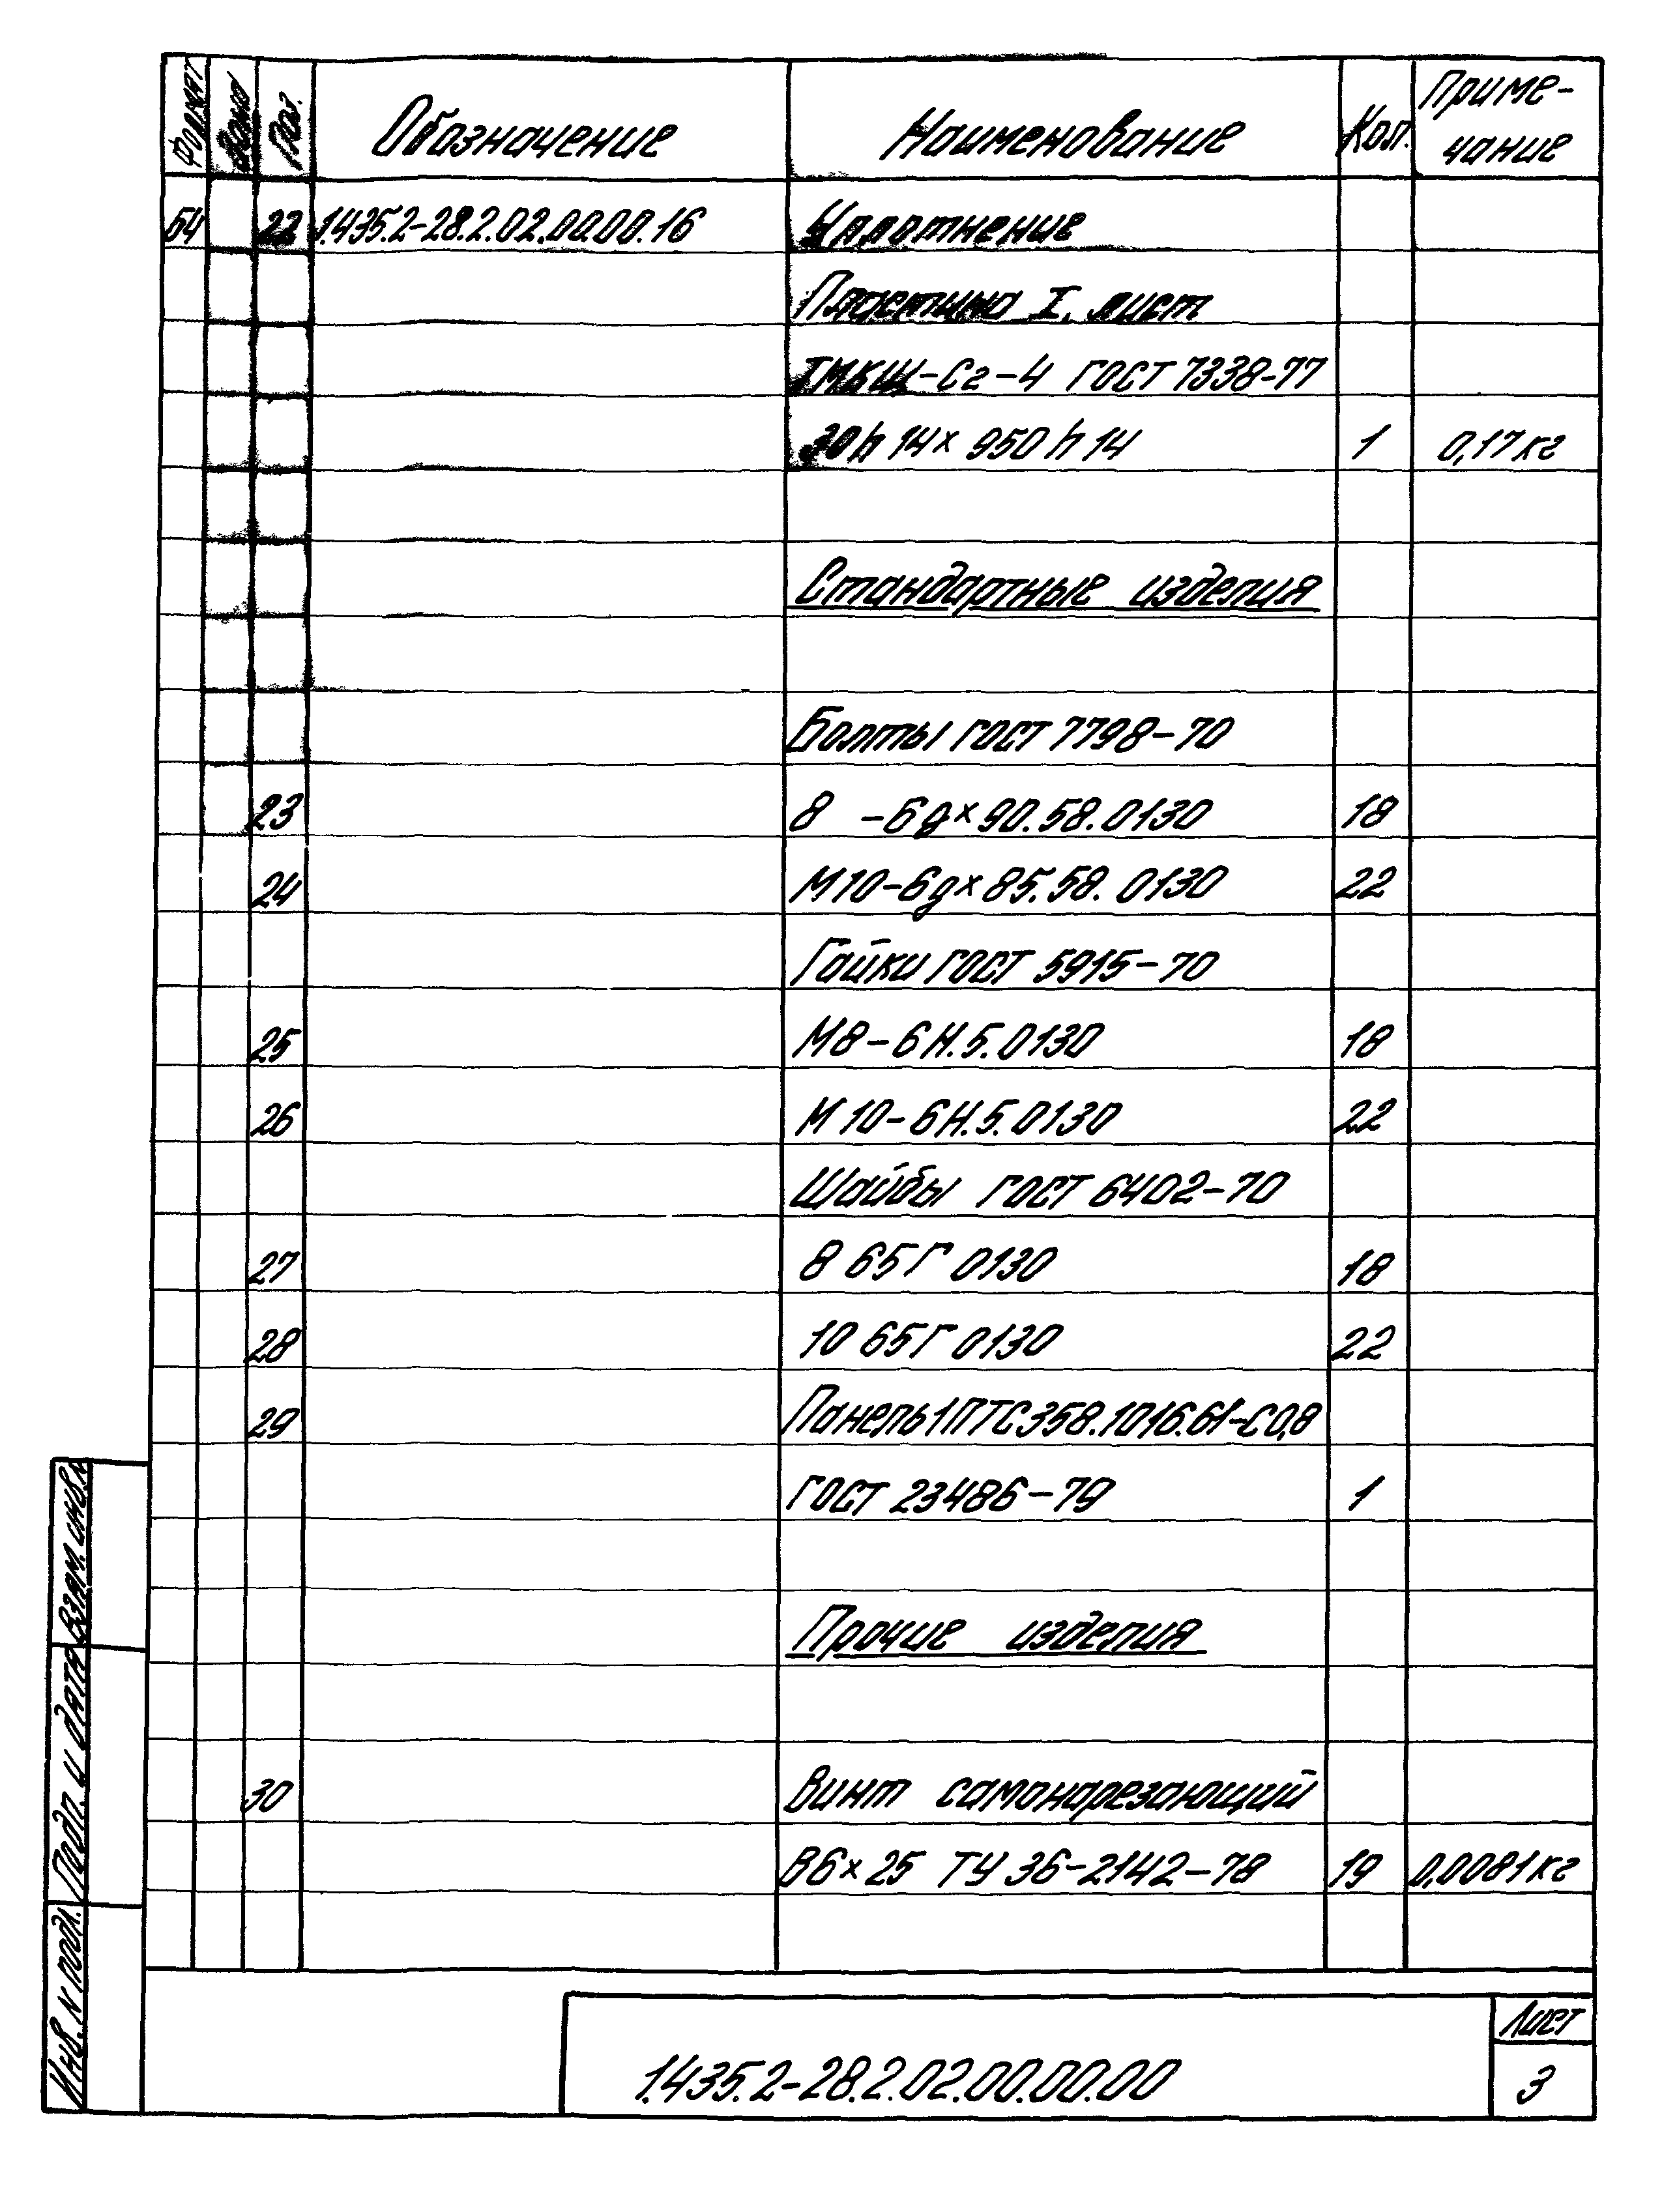 Формат Зона Поз. Обозначение Наименование Кол. Приме-
чание
БЧ 22 1.435.2-28.2.02.00.00.16 Уплотнение
Пластина I, лист
ТМКЩ-С2-4 ГОСТ 7338-77
30h14×950h14 1 0,17кг
Стандартные изделия
Болты ГОСТ 7798-70
23 8 -6g×90.58.0130 18
24 М10-6g×85.58.0130 22
Гайки ГОСТ 5915-70
25 М8-6Н.5.0130 18
26 М10-6Н.5.0130 22
Шайбы ГОСТ 6402-70
27 8 65Г 0130 18
28 10 65Г 0130 22
29 Панель 1ПТС358.1016.61-С0,8
ГОСТ 23486-79 1
Прочие изделия
30 Винт самонарезающий
В6×25 ТУ 36-2142-78 19 0,0081кг
Взам. инв.
Подп. и дата
Инв. N подл.
1.435.2-28.2.02.00.00.00
Лист
3